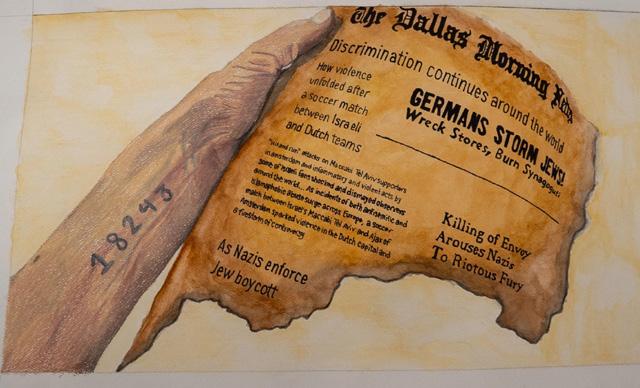 The Dallas Morning News
Discrimination continues around the world
How violence
unfolded after
a soccer match
between Israeli
and Dutch teams
GERMANS STORM JEWS!
Wreck Stores, Burn Synagogues
"hit and run" attacks on Maccabi Tel Aviv supporters
in Amsterdam and inflammatory and violent acts by
some of Israeli fans shocked and dismayed observers
around the world... As incidents of both antisemitic and
islamophobic abuse surge across Europe, a soccer
match between Israel's Maccabi Tel Aviv and Ajax of
Amsterdam sparked violence in the Dutch capital and
a firestorm of controversy
As Nazis enforce
Jew boycott
Killing of Envoy
Arouses Nazis
To Riotous Fury
18243